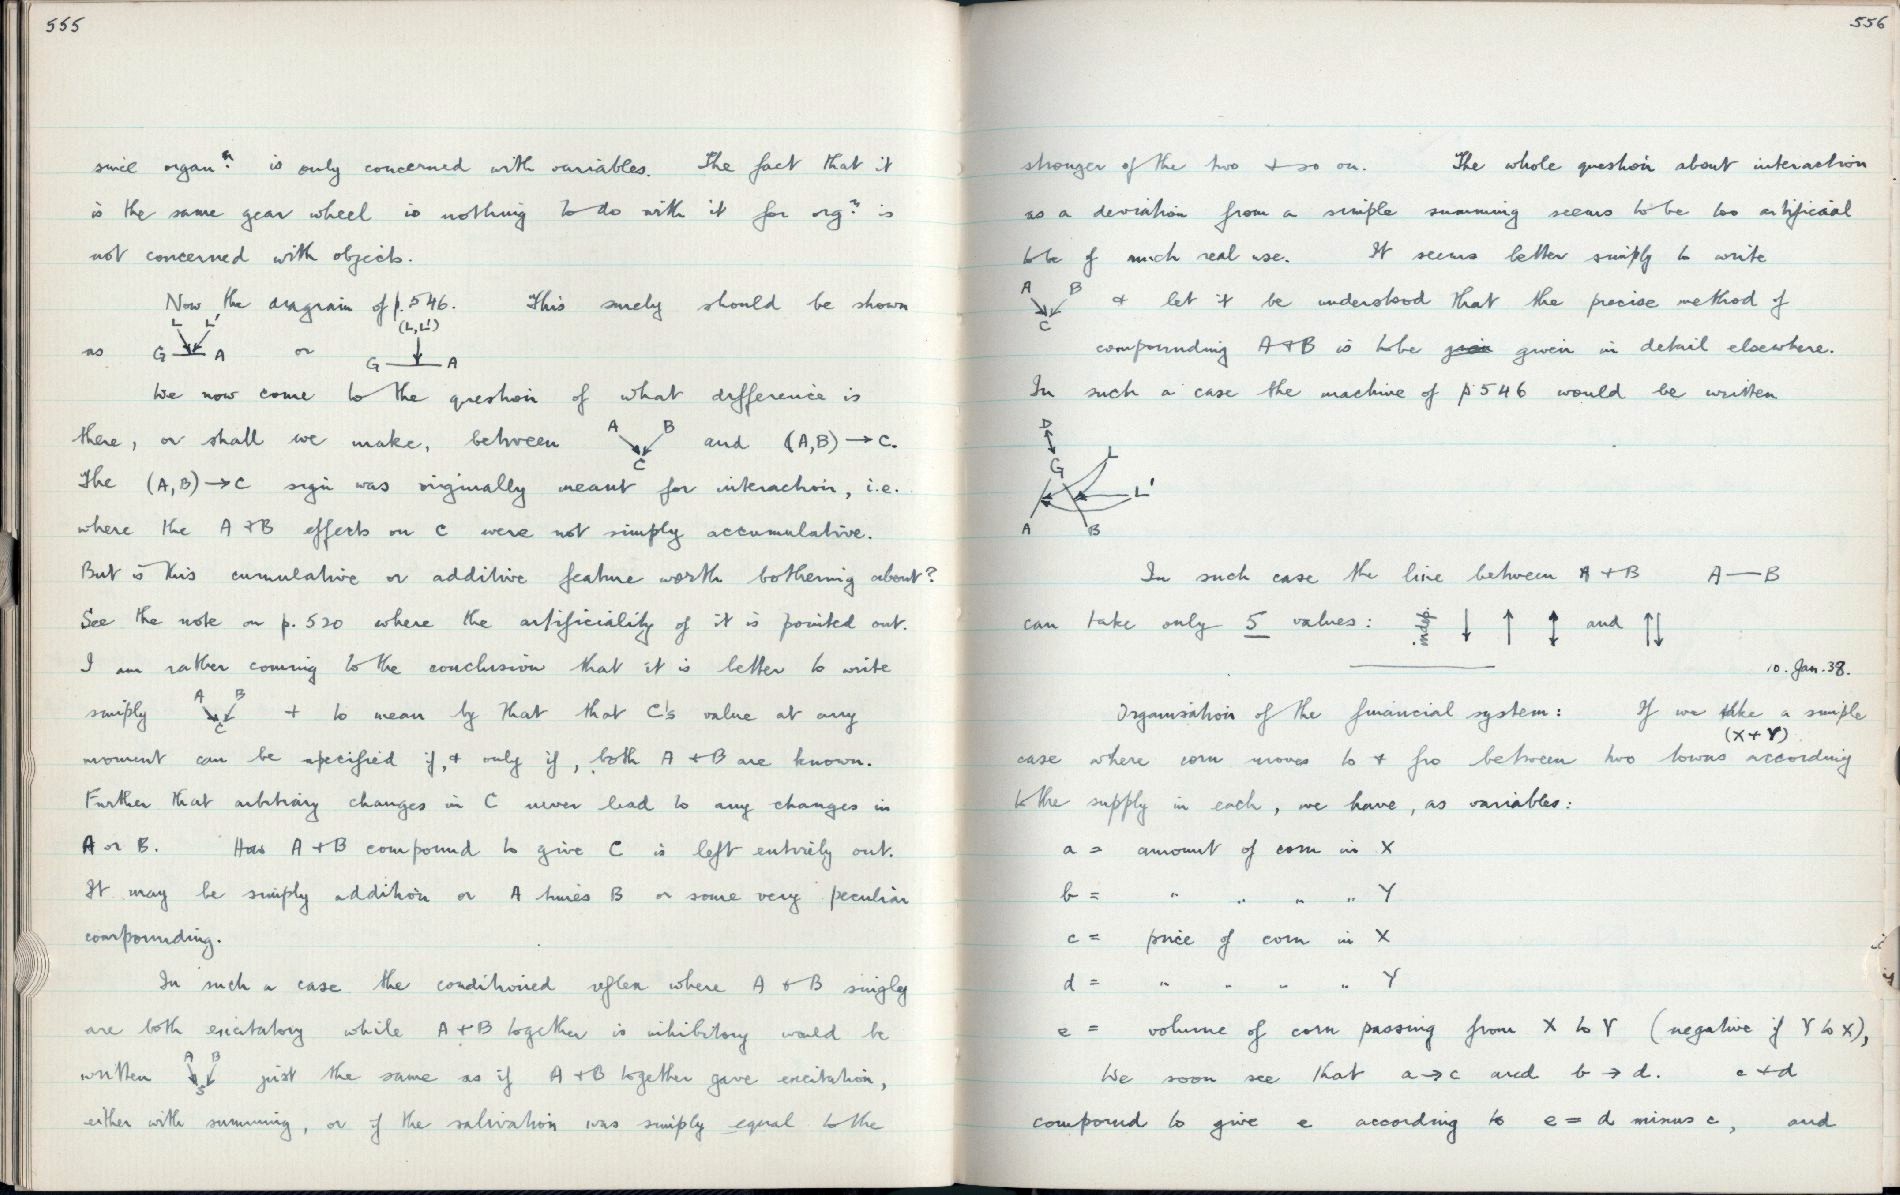 555
since organⁿ. is only concerned with variables. The fact that it
is the same gear wheel is nothing to do with it for orgⁿ. is
not concerned with objects.
Now, the diagram of p.546. This surely should be shown
L L' (L,L')
as G A or G A
We now come to the question of what difference is
there, or shall we make, between A B C and (A,B)→C.
The (A,B)→C sign was originally meant for interaction, i.e.
where the A + B effects on C were not simply accumulative.
But is this cumulative or additive feature worth bothering about?
See the note on p. 520 where the artificiality of it is pointed out.
I am rather coming to the conclusion that it is better to write
simply A B C + to mean by that that C's value at any
moment can be specified if, + only if, both A + B are known.
Further that arbitrary changes in C never lead to any changes in
A or B. How A + B compound to give C is left entirely out.
It may be simply addition or A times B or some very peculiar
compounding.
In such a case the conditioned reflex where A + B singly
are both excitatory while A + B together is inhibitory would be
written A B S just the same as if A + B together gave excitation,
either with summing, or if the salivation was simply equal to the
556
stronger of the two + so on. The whole question about interaction
as a deviation from a simple summing seems to be too artificial
to be of much real use. It seems better simply to write
A B C + let it be understood that the precise method of
compounding A + B is to be given in detail elsewhere.
In such a case the machine of p 546 would be written
D
G L
L'
A B
In such case the line between A + B A — B
can take only 5 values: indep. ↓ ↑ ↕ and ↑↓
10. Jan. 38.
Organisation of the financial system: If we take a simple
(X + Y)
case where corn moves to + fro between two towns according
to the supply in each, we have, as variables:
a = amount of corn in X
b = " " " " Y
c = price of corn in X
d = " " " " Y
e = volume of corn passing from X to Y (negative if Y to X),
We soon see that a→c and b→d. c + d
compound to give e according to e = d minus c, and